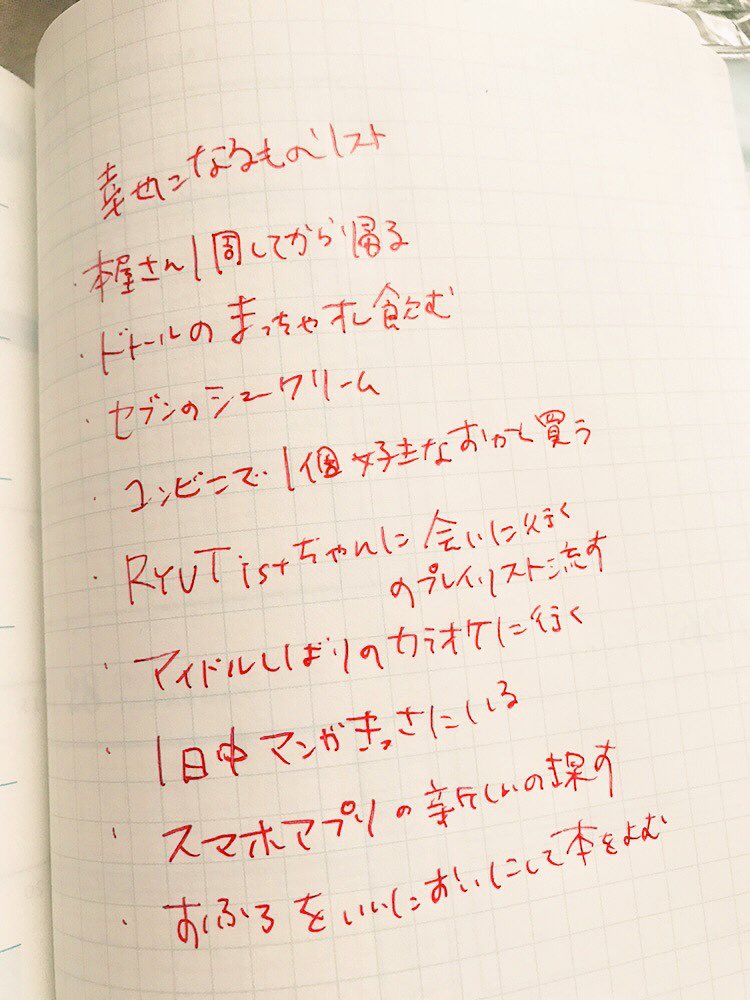 幸せになるものリスト
・本屋さん1周してから帰る
・ドトールのまっちゃオレ飲む
・セブンのシュークリーム
・コンビニで1個好きなおかし買う
・RYUTistちゃんに会いに行く
のプレイリスト流す
・アイドルしばりのカラオケに行く
・1日中マンガきっさにいる
・スマホアプリの新しいの探す
・おふろをいいにおいにして本をよむ